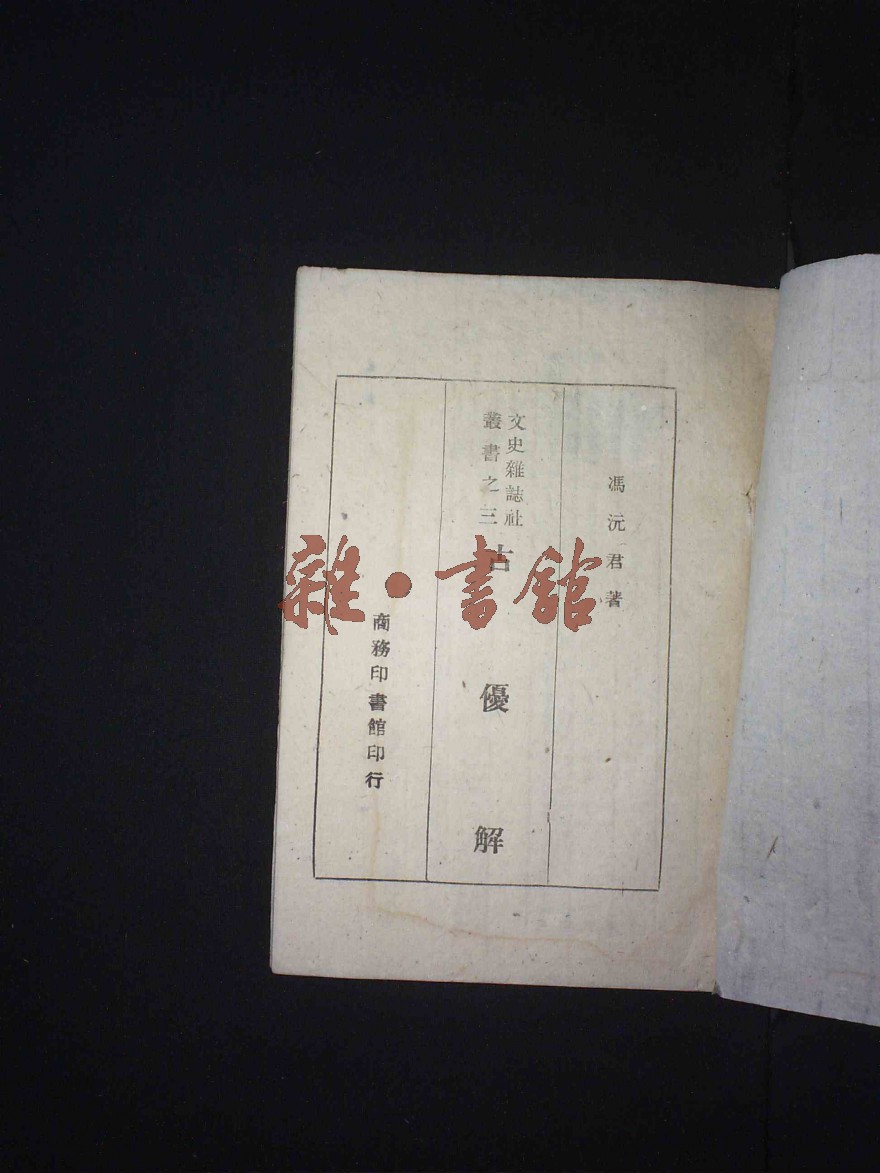 馮沅君著
文史雜誌社
叢書之三
古優解
商務印書館印行
雜·書館